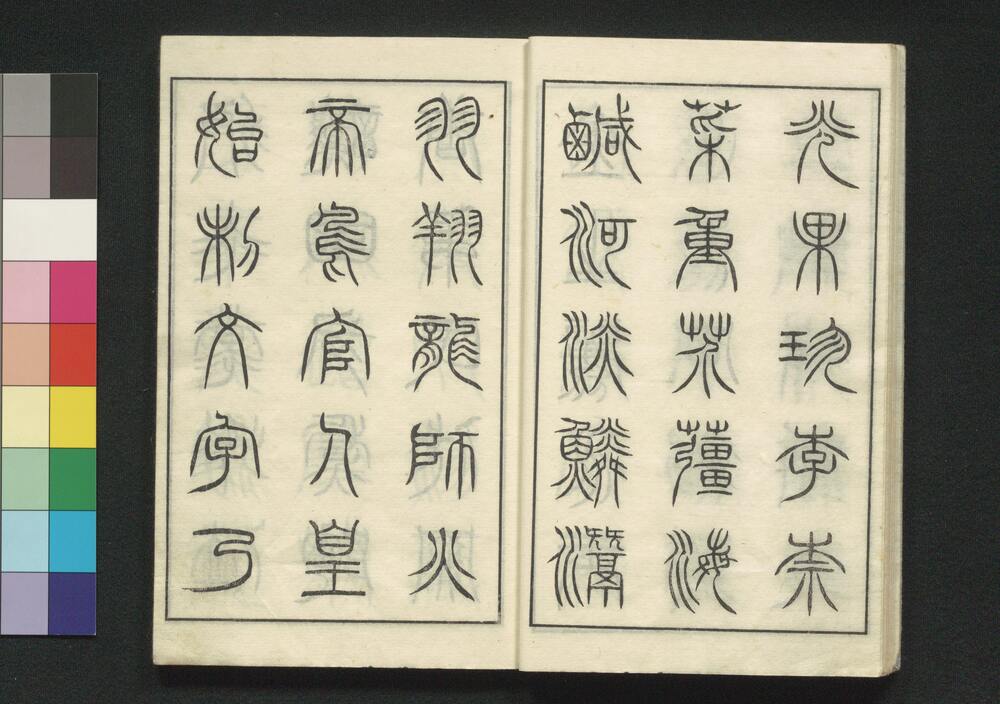 光果珍李柰
菜重芥薑海
鹹河淡鱗潛
羽翔龍師火
帝鳥官人皇
始制文字乃